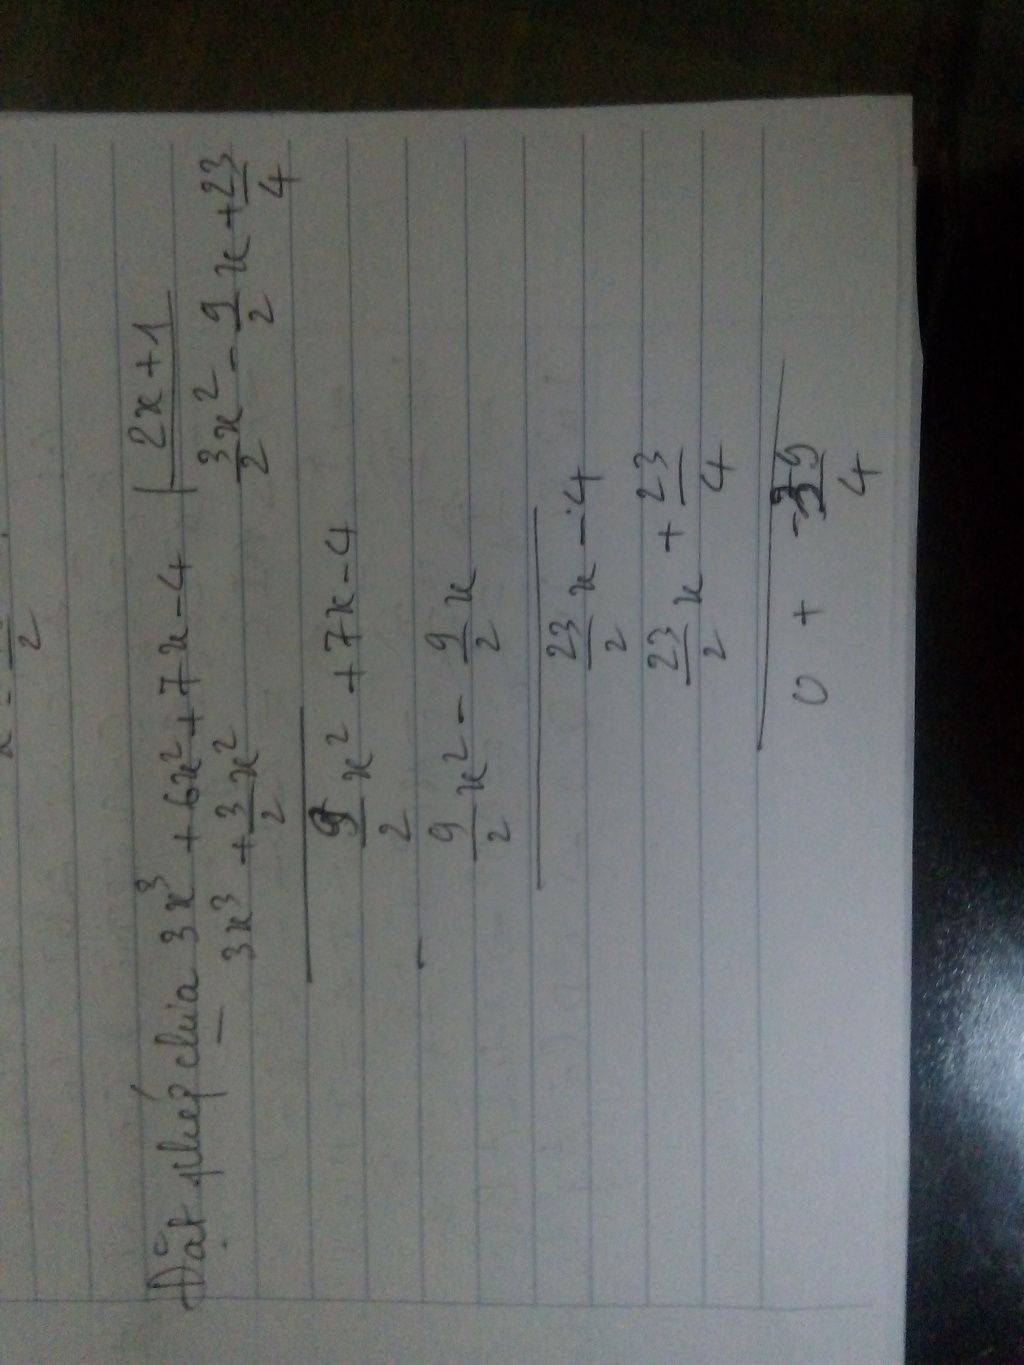 Đặt phép chia 3x³ + 6x² + 7x - 4 | 2x + 1
- 3x³ + 3/2 x²
3/2 x² - 9/2 x + 23/4
9/2 x² + 7x - 4
- 9/2 x² - 9/2 x
23/2 x - 4
23/2 x + 23/4
0 + -39/4